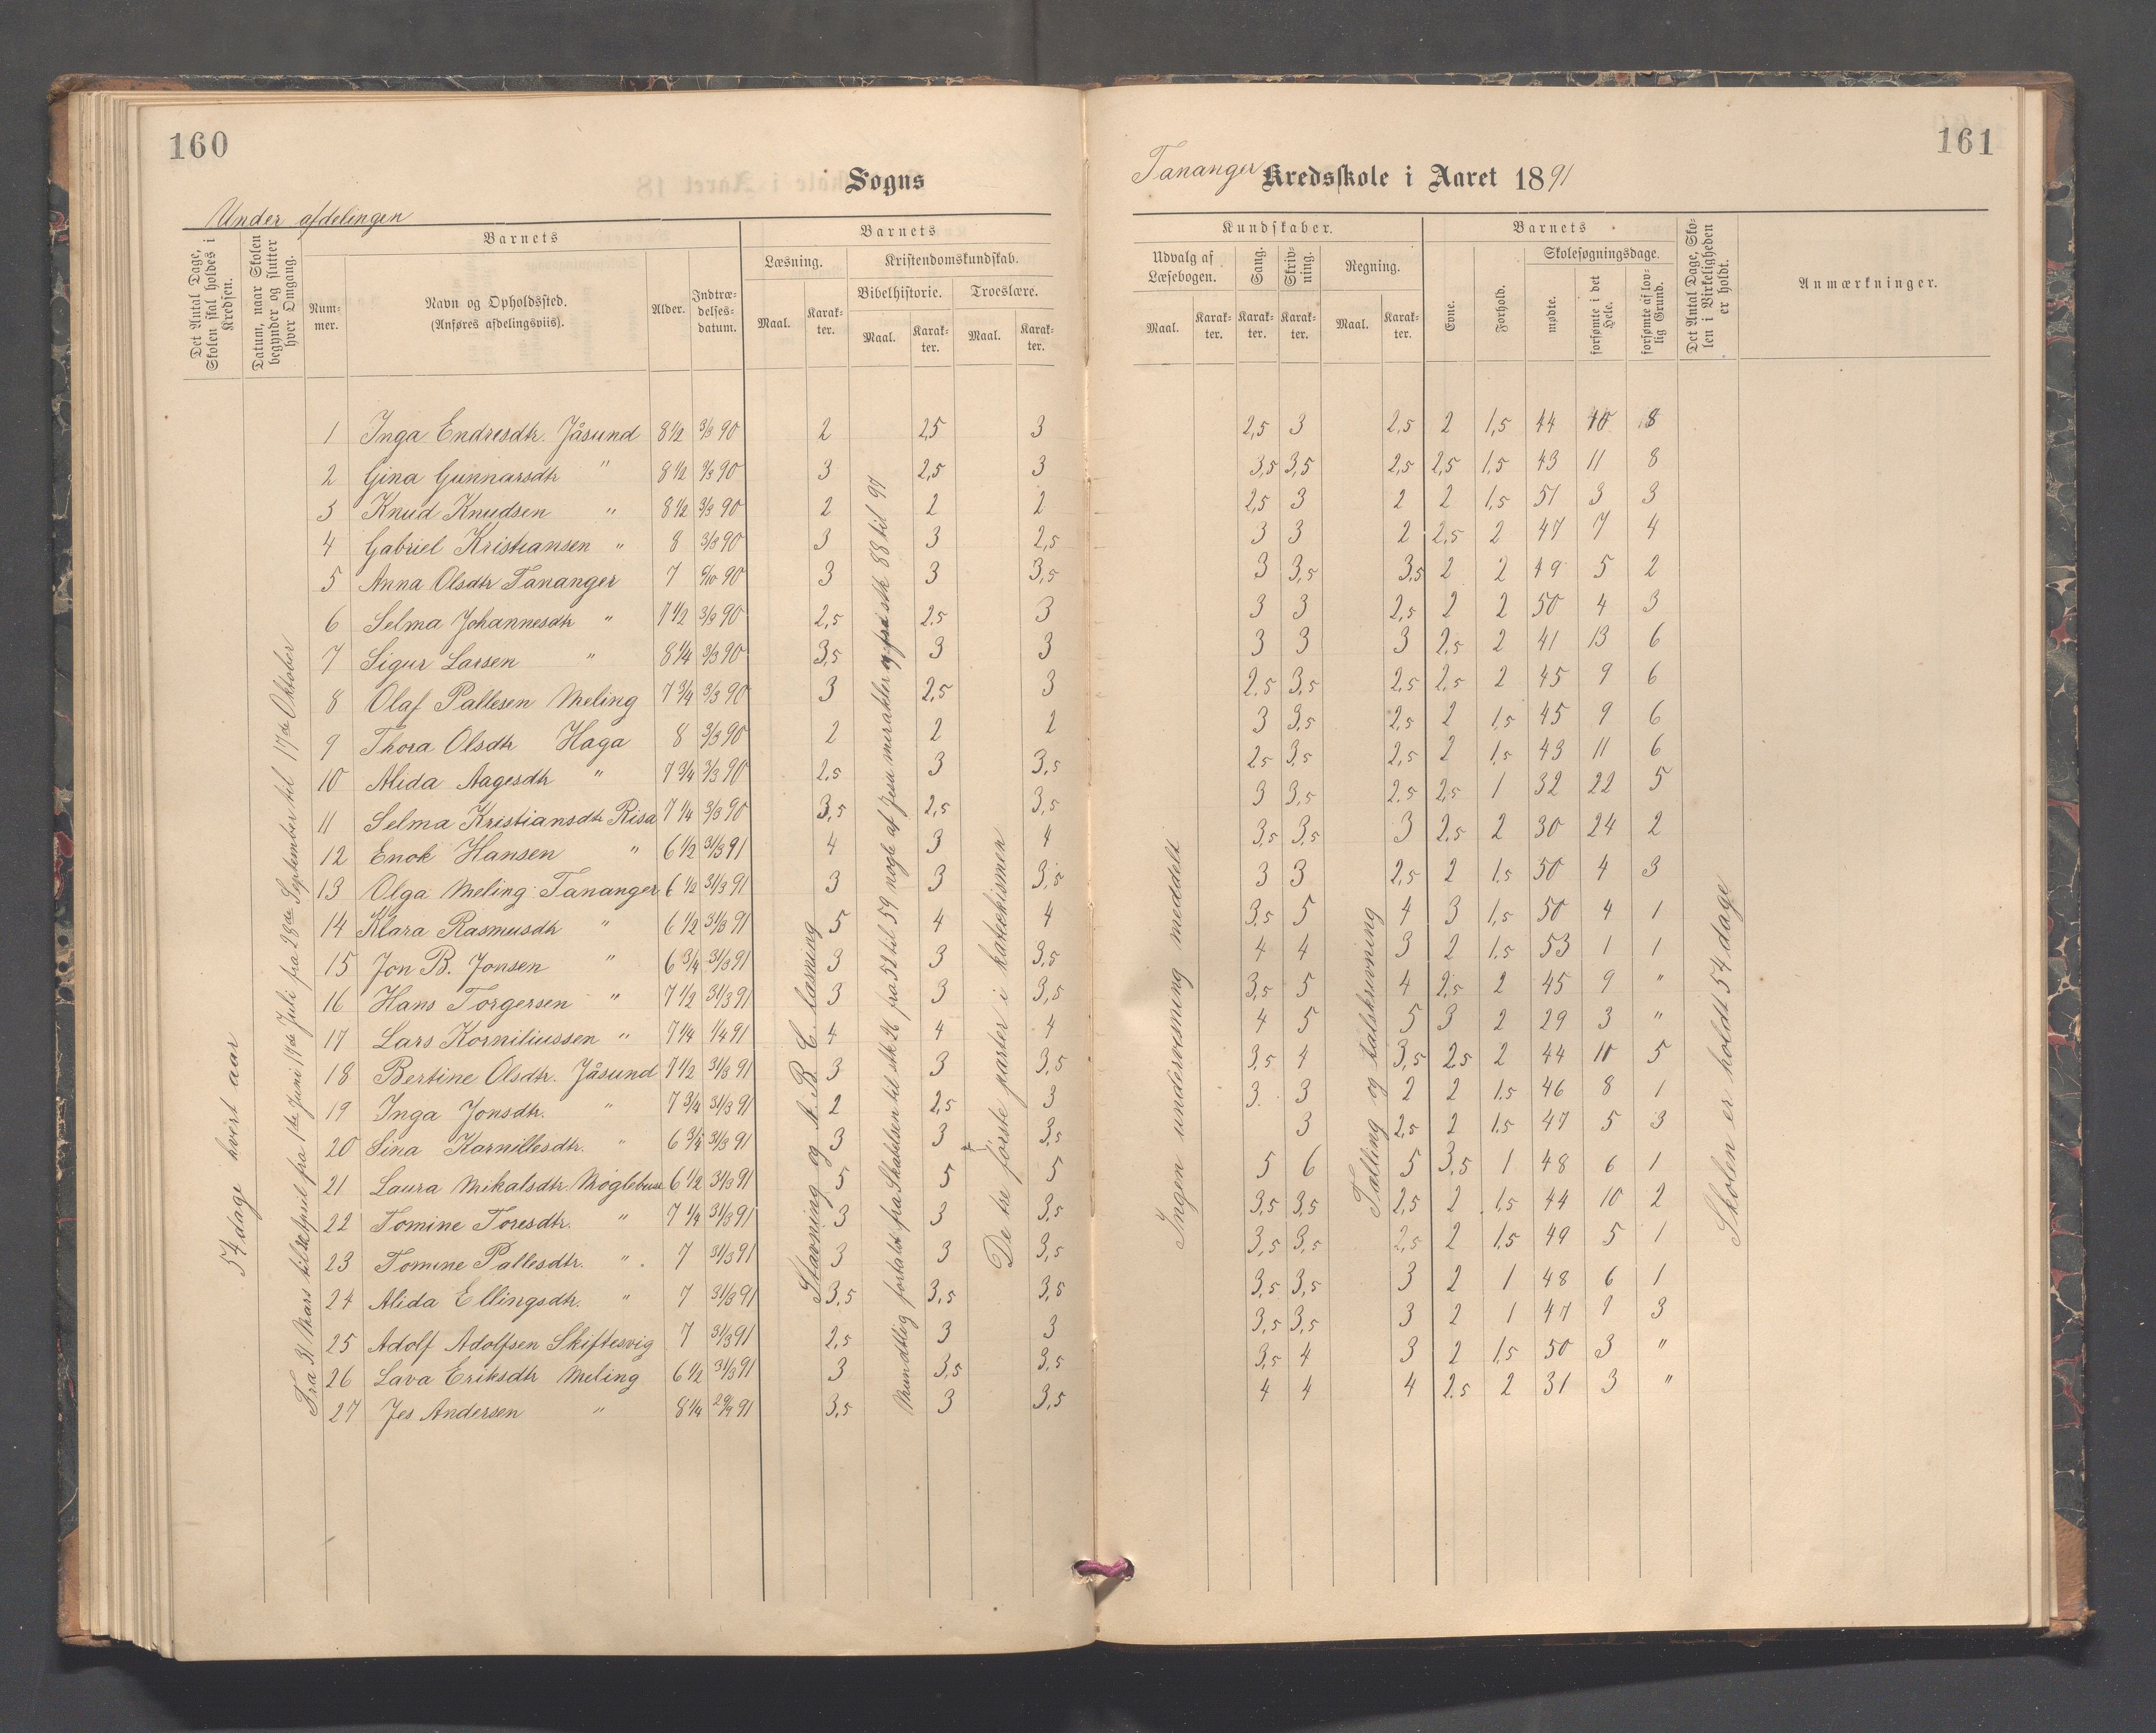 160
Sogns
Under afdelingen
Det Antal Dage, Skolen skal holdes i Kredsen.
Datum, naar Skolen begynder og slutter hver Omgang.
Barnets
Nummer.
Navn og Opholdssted.
(Anføres afdelingsviis).
Alder.
Indtrædelsesdatum.
Barnets
Læsning.
Kristendomskundskab.
Bibelhistorie.
Troeslære.
Maal.
Karakter.
Maal.
Karakter.
Maal.
Karakter.
54 dage hvert aar
Fra 31 Mars til April fra 1ste Juni 17de Juli fra 28de September til 17de Oktober
Stavning og A.B.C. læsning
Mundtlig fortalt fra Skabelsen til stk 26 fra 52 til 59 nogle af Jesu mirakler og fra stk 88 til 97
De tre förste parter i katekismen
1 Inga Endresdtr. Jåsund 8 1/2 3/3 90 2 2,5 3
2 Gina Gunnarsdtr " 8 1/2 3/3 90 3 2,5 3
3 Knud Knudsen " 8 1/2 3/3 90 2 2 2
4 Gabriel Kristiansen " 8 3/3 90 3 3 2,5
5 Anna Olsdtr Tananger 7 6/10 90 3 3 3,5
6 Selma Johannesdtr " 7 1/2 3/3 90 2,5 2,5 3
7 Sigur Larsen " 8 1/4 3/3 90 3,5 3 3
8 Olaf Pallesen Meling 7 3/4 3/3 90 3 2,5 3
9 Thora Olsdtr Haga 8 3/3 90 2 2 2
10 Alida Aagesdtr " 7 3/4 3/3 90 2,5 3 3,5
11 Selma Kristiansdtr Risa 7 1/4 3/3 90 3,5 2,5 3,5
12 Enok Hansen " 6 1/2 31/3 91 4 3 4
13 Olga Meling Tananger 6 1/2 31/3 91 3 3 3,5
14 Klara Rasmusdtr " 6 1/2 31/3 91 5 4 4
15 Jon B. Jonsen " 6 3/4 31/3 91 3 3 3,5
16 Hans Torgersen " 7 1/2 31/3 91 3 3 3,5
17 Lars Korniliussen " 7 1/4 1/4 91 4 4 4
18 Bertine Olsdtr. Jåsund 7 1/2 31/3 91 3 3 3,5
19 Inga Jonsdtr. " 7 3/4 31/3 91 2 2,5 3
20 Sina Karnillesdtr. " 6 3/4 31/3 91 3 3 3,5
21 Laura Mikalsdtr Møglebust 6 1/2 31/3 91 5 5 5
22 Tomine Toresdtr. " 7 1/4 31/3 91 3 3 3,5
23 Tomine Pallesdtr. " 7 31/3 91 3 3 3,5
24 Alida Ellingsdtr. " 7 31/3 91 3,5 3,5 3,5
25 Adolf Adolfsen Skiftesvig 7 31/3 91 2,5 3 3
26 Lava Eriksdtr Meling 6 1/2 31/3 91 3 3,5 3,5
27 Jes Andersen " 8 1/4 29/9 91 3,5 3 3,5
161
Tananger Kredsskole i Aaret 1891
Kundskaber.
Udvalg af Læsebogen.
Sang.
Skrivning.
Regning.
Maal.
Karakter.
Karakter.
Karakter.
Maal.
Karakter.
Barnets
Evne.
Forhold.
Skolesøgningsdage.
mødte.
forsømte i det Hele.
forsømte af lovlig Grund.
Det Antal Dage, Skolen i Virkeligheden er holdt.
Anmærkninger.
Ingen undervisning meddelt
Tælling og talskrivning
Skolen er holdt 54 dage
2,5 3 2,5 2 1,5 44 10 8
3,5 3,5 2,5 2,5 1,5 43 11 8
2,5 3 2 2 1,5 51 3 3
3 3 2 2,5 2 47 7 4
3 3,5 3,5 2 2 49 5 2
3 3 2,5 2 2 50 4 3
3 3 3 2,5 2 41 13 6
2,5 3,5 2,5 2,5 2 45 9 6
3 3,5 2,5 2 1,5 45 9 6
2,5 3,5 2,5 2 1,5 43 11 6
3 3,5 2,5 2,5 1 32 22 5
3,5 3,5 3 2,5 2 30 24 2
3 3 2,5 2 1,5 50 4 3
3,5 5 4 3 1,5 50 4 1
4 4 3 2 1,5 53 1 1
3,5 5 4 2,5 2 45 9 "
4 5 5 3 2 29 3 "
3,5 4 3,5 2,5 2 44 10 5
3 3 2 2 1,5 46 8 1
3 2,5 2 1,5 47 5 3
5 6 5 3,5 1 48 6 1
3,5 3,5 2,5 2 1,5 44 10 2
3,5 3,5 2,5 2 1,5 49 5 1
3,5 3,5 3 2 1 48 6 1
3,5 3,5 3 2 1 47 7 3
3,5 4 3 2 1,5 50 3 "
4 4 4 2,5 2 31 3 "